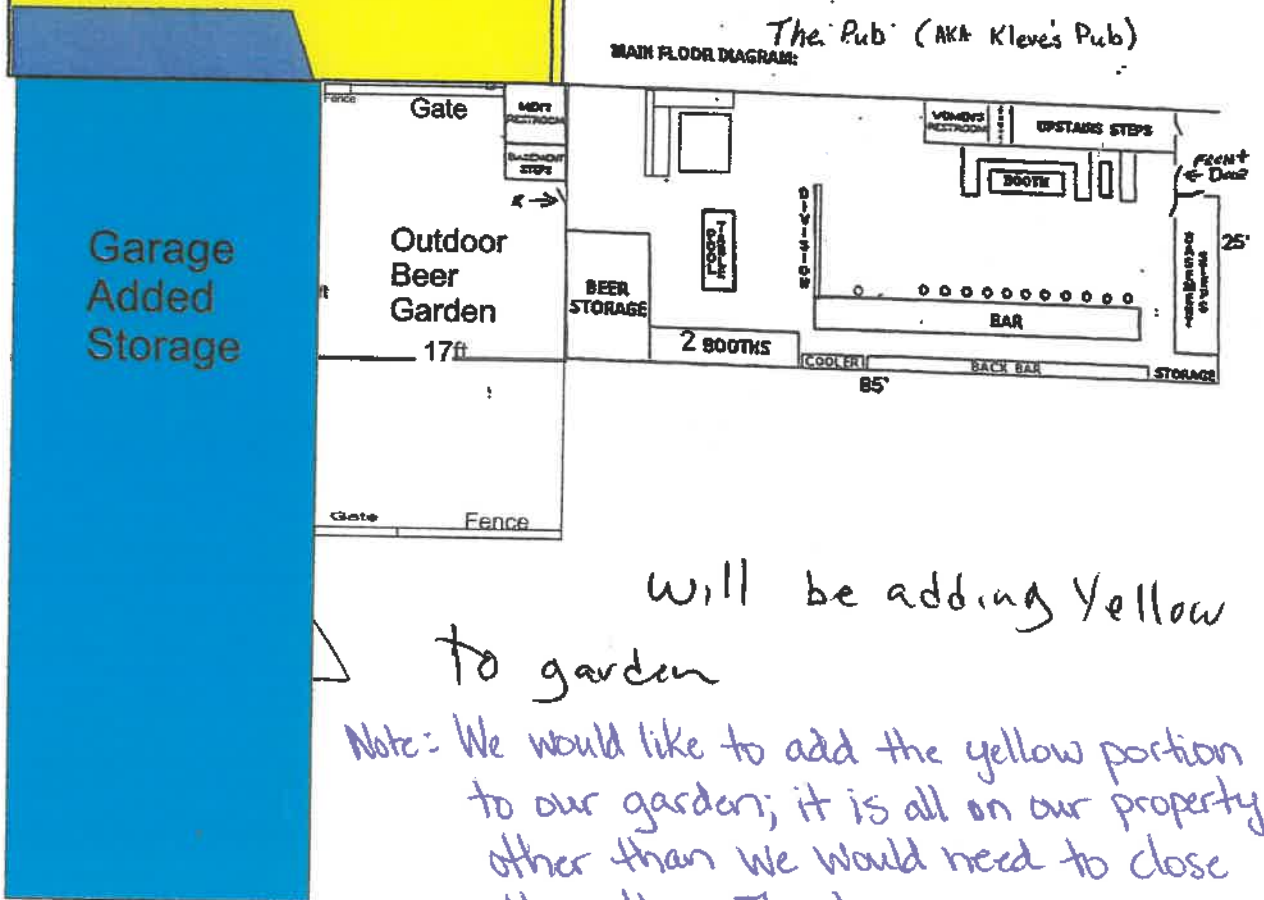 The Pub (AKA Kleve's Pub)
MAIN FLOOR DIAGRAM:
Fence
Gate
MEN'S
RESTROOM
BASEMENT
STEPS
WOMEN'S
RESTROOM
UPSTAIRS STEPS
FRONT
← DOOR
BOOTH
x →
Garage
Added
Storage
Outdoor
Beer
Garden
ft
17ft
BEER
STORAGE
DIVISION
25'
BAR
2 BOOTHS
COOLER
BACK BAR
STORAGE
85'
Gate
Fence
will be adding Yellow
to garden
Note: We would like to add the yellow portion
to our garden; it is all on our property
other than we would need to close